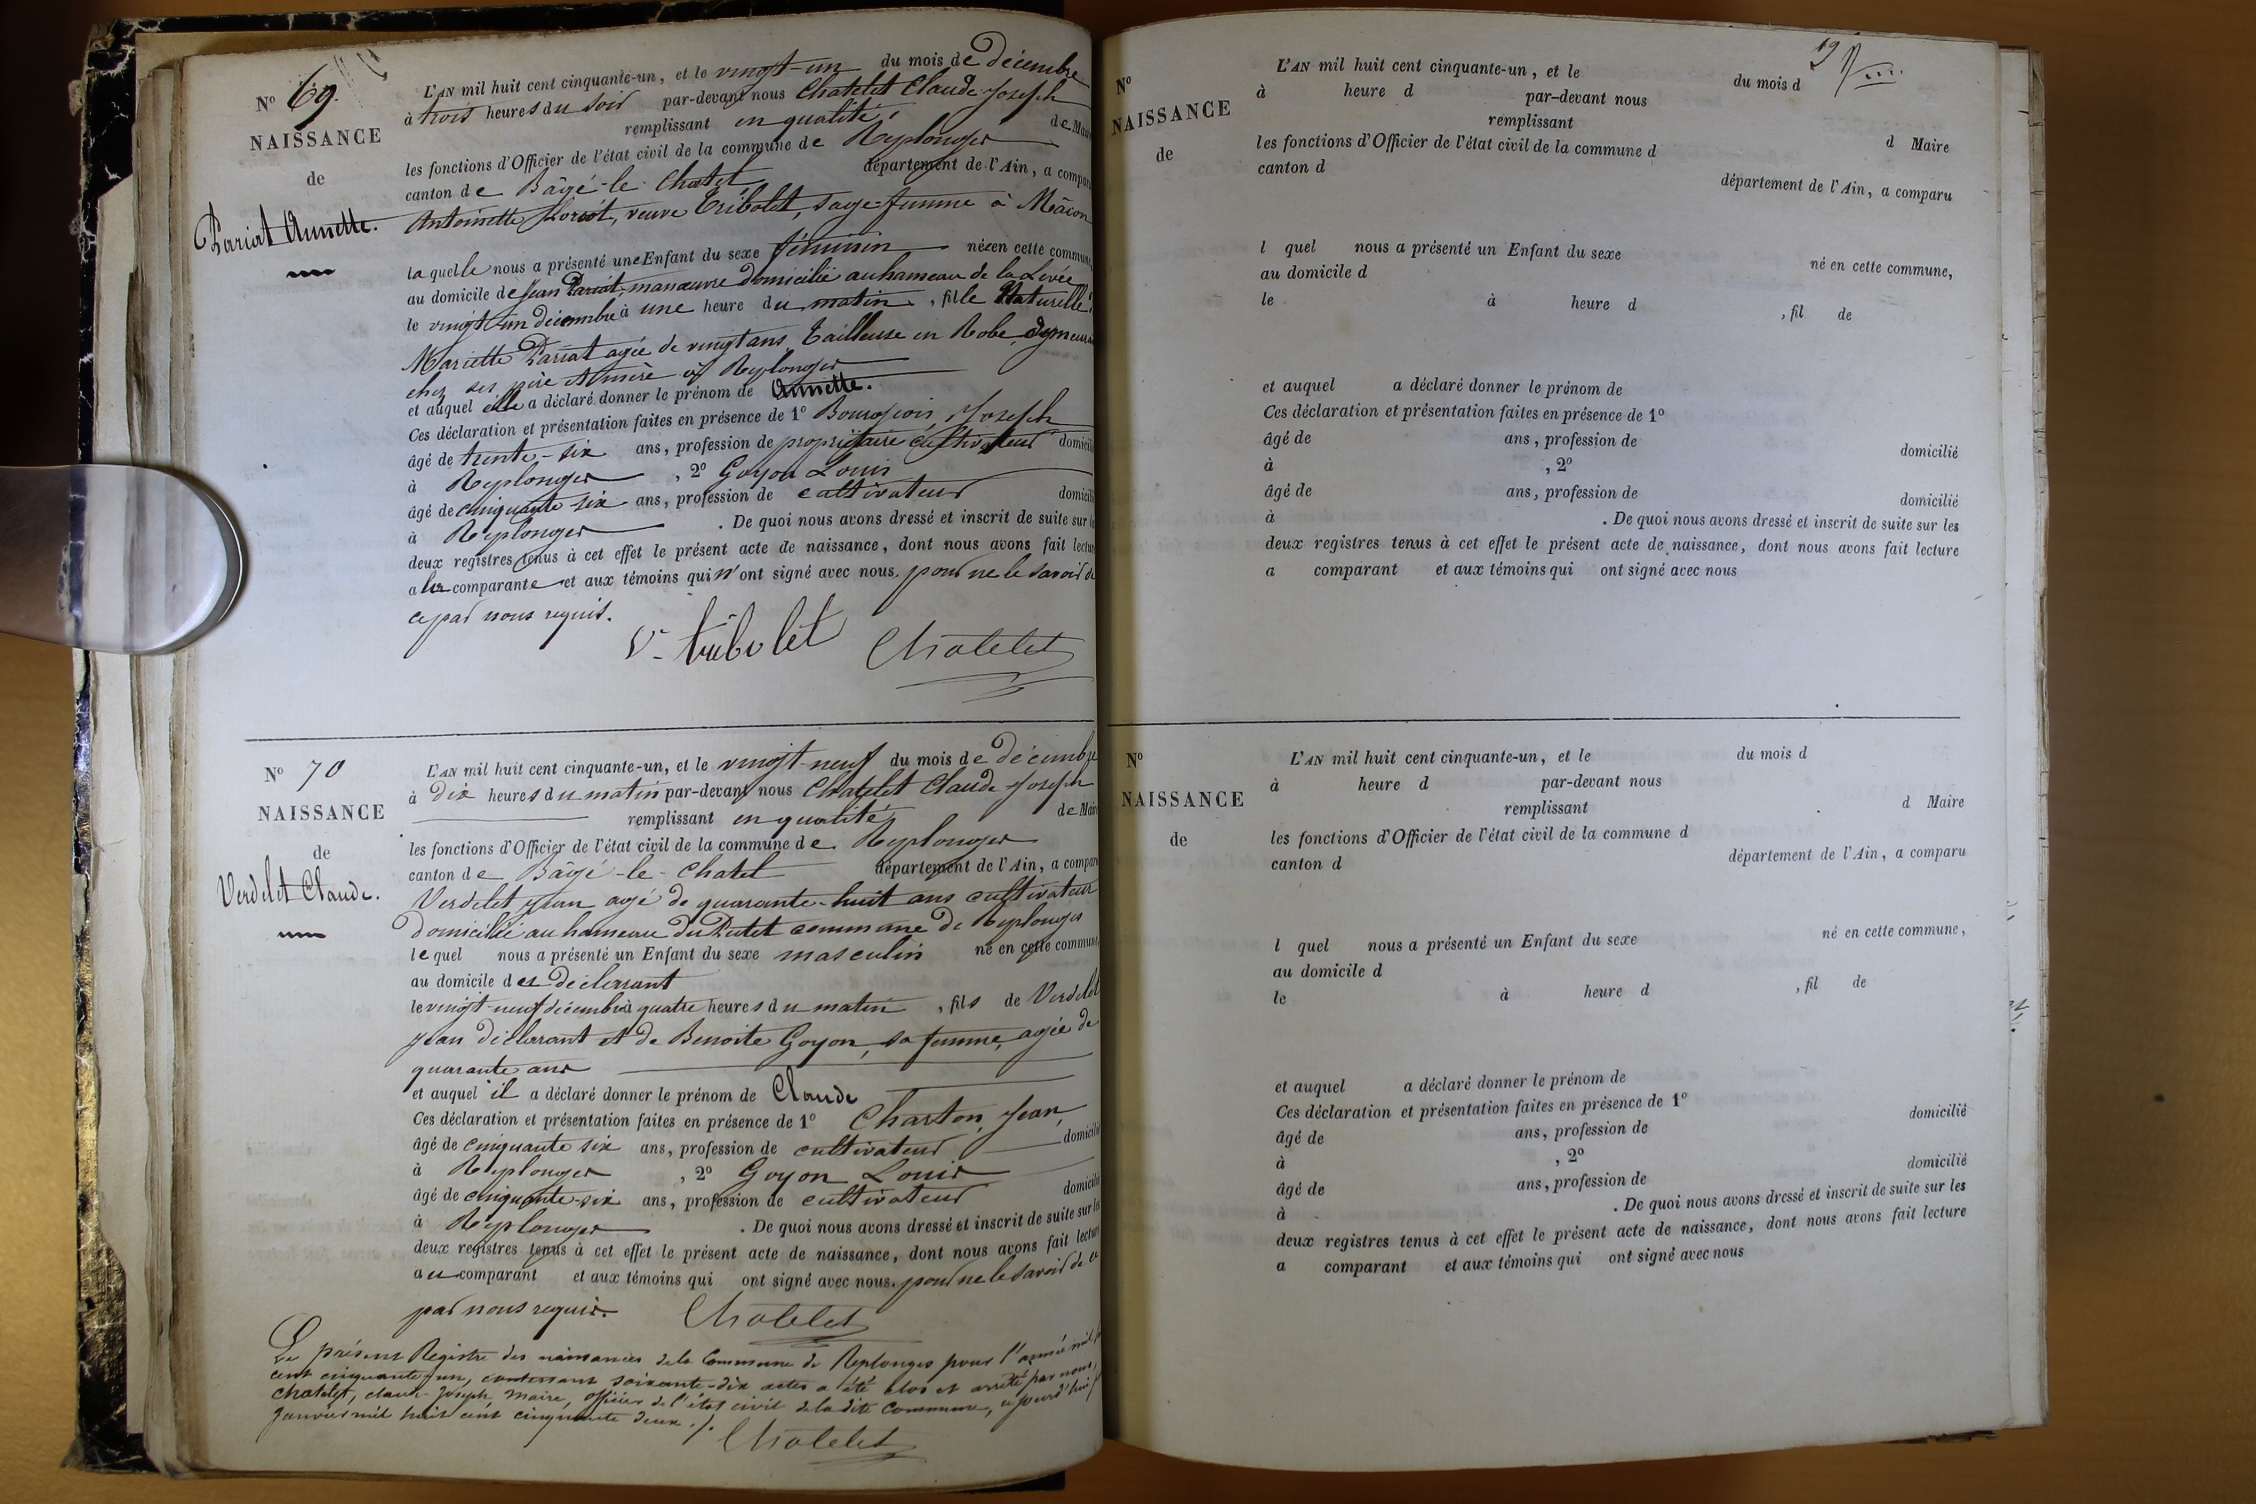 N° 69.
NAISSANCE
de
Pariat Annette.
L'AN mil huit cent cinquante-un, et le vingt-un du mois de Décembre
à trois heures du soir par-devant nous Chatelet Claude Joseph
remplissant en qualité de Maire
les fonctions d'Officier de l'état civil de la commune de Replonges
canton de Bâgé-le-Chatel département de l'Ain, a comparu
Antoinette veuve Tribolet, sage-femme à Mâcon
laquelle nous a présenté une Enfant du sexe féminin née en cette commune,
au domicile de Jean Pariat, manœuvre domicilié au hameau de la Levée
le vingt-un décembre à une heure du matin, fille Naturelle
Mariette Pariat agée de vingt ans, Tailleuse en Robe,
chez ses père et mère à Replonges
et auquel elle a déclaré donner le prénom de Annette.
Ces déclaration et présentation faites en présence de 1° Bourgeois, Joseph
âgé de trente-six ans, profession de propriétaire cultivateur domicilié
à Replonges, 2° Goyon Louis
âgé de cinquante-six ans, profession de cultivateur domicilié
à Replonges. De quoi nous avons dressé et inscrit de suite sur les
deux registres tenus à cet effet le présent acte de naissance, dont nous avons fait lecture
a la comparante et aux témoins qui n'ont signé avec nous. pour ne le savoir de
ce par nous requis.
Ve tribolet Chatelet
N° 70
NAISSANCE
de
Verdelet Claude.
L'AN mil huit cent cinquante-un, et le vingt-neuf du mois de décembre
à dix heures du matin par-devant nous Chatelet Claude Joseph
remplissant en qualité de Maire
les fonctions d'Officier de l'état civil de la commune de Replonges
canton de Bâgé-le-Chatel département de l'Ain, a comparu
Verdelet Jean agé de quarante-huit ans cultivateur
domicilié au hameau du Putet commune de Replonges
lequel nous a présenté un Enfant du sexe masculin né en cette commune,
au domicile du déclarant
le vingt-neuf décembre à quatre heures du matin, fils de Verdelet
Jean déclarant et de Benoite Goyon, sa femme, agée de
quarante ans
et auquel il a déclaré donner le prénom de Claude
Ces déclaration et présentation faites en présence de 1° Charton, Jean,
âgé de cinquante six ans, profession de cultivateur domicilié
à Replonges, 2° Goyon Louis
âgé de cinquante-six ans, profession de cultivateur domicilié
à Replonges. De quoi nous avons dressé et inscrit de suite sur les
deux registres tenus à cet effet le présent acte de naissance, dont nous avons fait lecture
au comparant et aux témoins qui ont signé avec nous. pour ne le savoir de ce
par nous requis. Chatelet
Le présent Registre des naissances de la Commune de Replonges pour l'année mil
cent cinquante-un, contenant soixante-dix actes a été clos et arrêté par nous,
Chatelet, claude-Joseph, Maire, officier de l'état civil de la dite Commune, ce jourd'hui
Janvier mil huit cent cinquante deux ./.
Chatelet
19
N°
NAISSANCE
de
L'AN mil huit cent cinquante-un, et le du mois d
à heure d par-devant nous
remplissant d Maire
les fonctions d'Officier de l'état civil de la commune d
canton d département de l'Ain, a comparu
l quel nous a présenté un Enfant du sexe né en cette commune,
au domicile d
le à heure d , fil de
et auquel a déclaré donner le prénom de
Ces déclaration et présentation faites en présence de 1°
âgé de ans, profession de domicilié
à , 2°
âgé de ans, profession de domicilié
à . De quoi nous avons dressé et inscrit de suite sur les
deux registres tenus à cet effet le présent acte de naissance, dont nous avons fait lecture
a comparant et aux témoins qui ont signé avec nous
N°
NAISSANCE
de
L'AN mil huit cent cinquante-un, et le du mois d
à heure d par-devant nous
remplissant d Maire
les fonctions d'Officier de l'état civil de la commune d
canton d département de l'Ain, a comparu
l quel nous a présenté un Enfant du sexe né en cette commune,
au domicile d
le à heure d , fil de
et auquel a déclaré donner le prénom de
Ces déclaration et présentation faites en présence de 1°
âgé de ans, profession de domicilié
à , 2°
âgé de ans, profession de domicilié
à . De quoi nous avons dressé et inscrit de suite sur les
deux registres tenus à cet effet le présent acte de naissance, dont nous avons fait lecture
a comparant et aux témoins qui ont signé avec nous